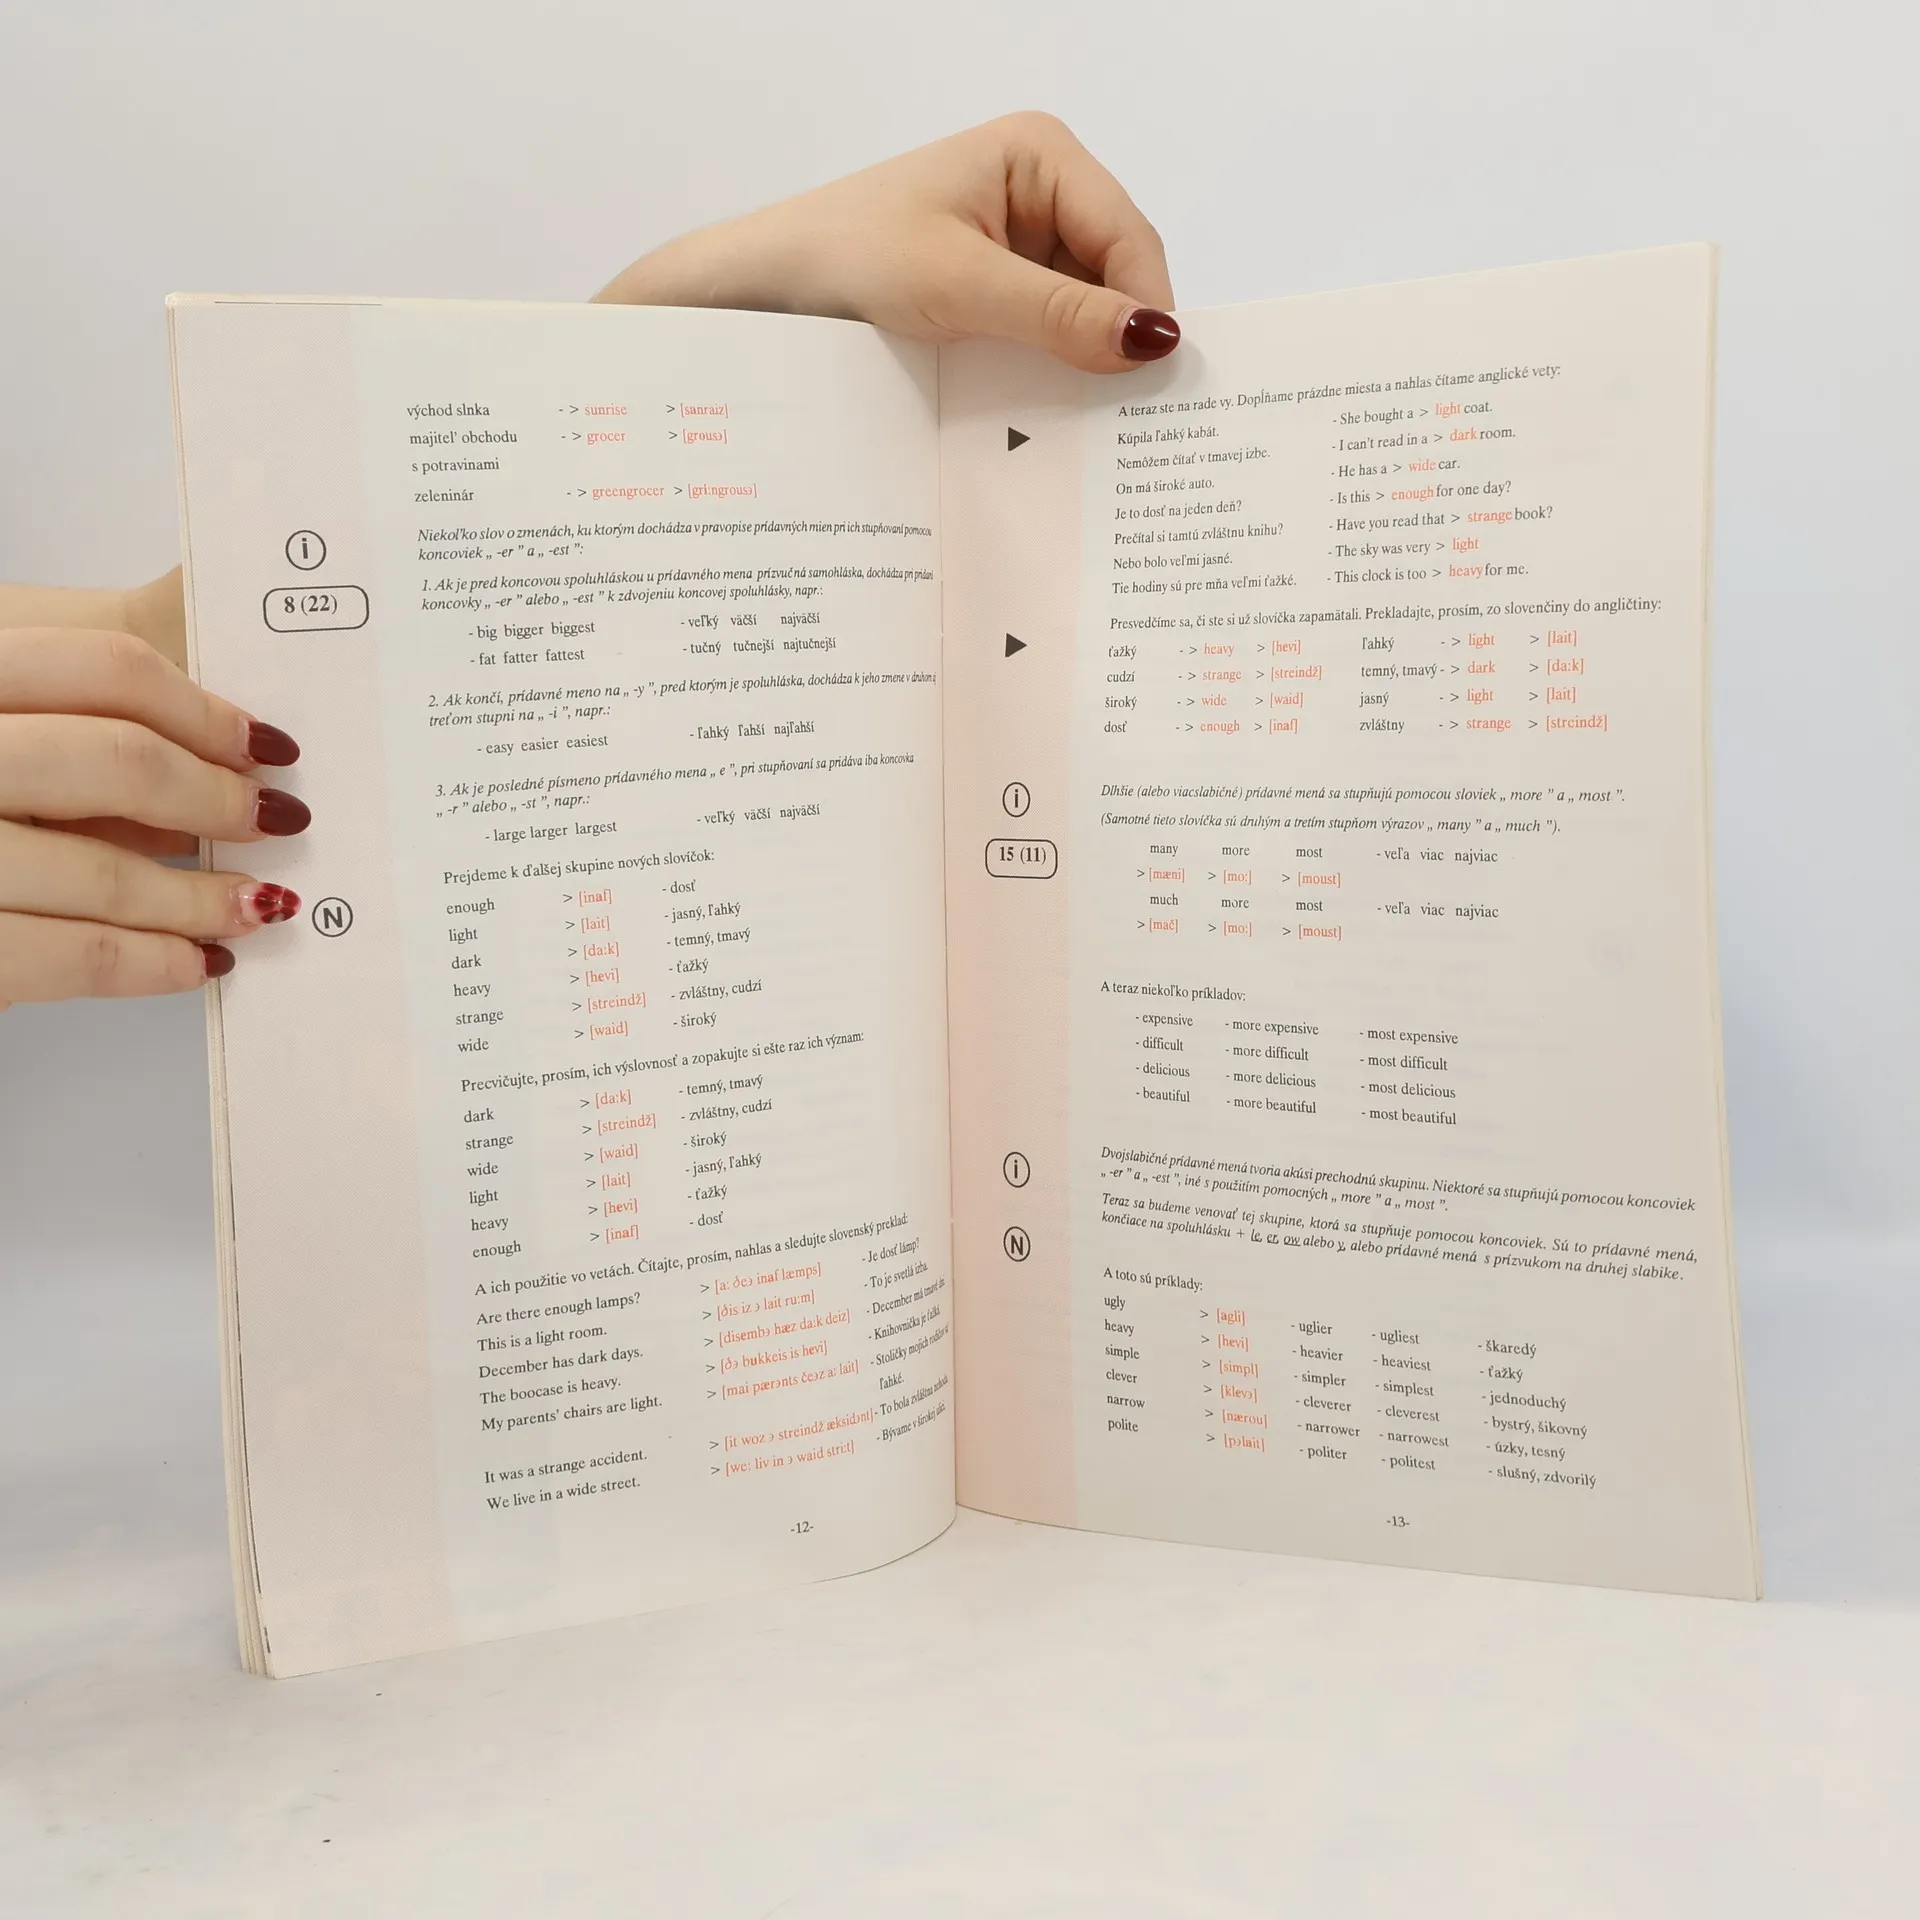 východ slnka - > sunrise > [sanraiz]
majiteľ obchodu - > grocer > [grousɘ]
s potravinami
zeleninár - > greengrocer > [gri:ngrousɘ]
Niekoľko slov o zmenách, ku ktorým dochádza v pravopise prídavných mien pri ich stupňovaní pomocou
koncoviek „ -er ” a „ -est ”:
i
8 (22)
1. Ak je pred koncovou spoluhláskou u prídavného mena prízvučná samohláska, dochádza pri pridaní
koncovky „ -er ” alebo „ -est ” k zdvojeniu koncovej spoluhlásky, napr.:
- big bigger biggest - veľký väčší najväčší
- fat fatter fattest - tučný tučnejší najtučnejší
2. Ak končí, prídavné meno na „ -y ”, pred ktorým je spoluhláska, dochádza k jeho zmene v druhom
treťom stupni na „ -i ”, napr.:
- easy easier easiest - ľahký ľahší najľahší
3. Ak je posledné písmeno prídavného mena „ e ”, pri stupňovaní sa pridáva iba koncovka
„ -r ” alebo „ -st ”, napr.:
- large larger largest - veľký väčší najväčší
Prejdeme k ďalšej skupine nových slovíčok:
N
enough > [inaf] - dosť
light > [lait] - jasný, ľahký
dark > [da:k] - temný, tmavý
heavy > [hevi] - ťažký
strange > [streindž] - zvláštny, cudzí
wide > [waid] - široký
Precvičujte, prosím, ich výslovnosť a zopakujte si ešte raz ich význam:
dark > [da:k] - temný, tmavý
strange > [streindž] - zvláštny, cudzí
wide > [waid] - široký
light > [lait] - jasný, ľahký
heavy > [hevi] - ťažký
enough > [inaf] - dosť
A ich použitie vo vetách. Čítajte, prosím, nahlas a sledujte slovenský preklad:
Are there enough lamps? > [a: ðeɘ inaf læmps] - Je dosť lámp?
This is a light room. > [ðis iz ɘ lait ru:m] - To je svetlá izba.
December has dark days. > [disembɘ hæz da:k deiz] - December má tmavé dni.
The boocase is heavy. > [ðɘ bukkeis is hevi] - Knihovnička je ťažká.
My parents’ chairs are light. > [mai pærɘnts čeɘz a: lait] - Stoličky mojich rodičov sú
ľahké.
It was a strange accident. > [it woz ɘ streindž æksidɘnt] - To bola zvláštna nehoda.
We live in a wide street. > [we: liv in ɘ waid stri:t] - Bývame v širokej ulici.
-12-
A teraz ste na rade vy. Dopĺňame prázdne miesta a nahlas čítame anglické vety:
Kúpila ľahký kabát. - She bought a > light coat.
Nemôžem čítať v tmavej izbe. - I can’t read in a > dark room.
On má široké auto. - He has a > wide car.
Je to dosť na jeden deň? - Is this > enough for one day?
Prečítal si tamtú zvláštnu knihu? - Have you read that > strange book?
Nebo bolo veľmi jasné. - The sky was very > light
Tie hodiny sú pre mňa veľmi ťažké. - This clock is too > heavy for me.
Presvedčíme sa, či ste si už slovíčka zapamätali. Prekladajte, prosím, zo slovenčiny do angličtiny:
ťažký - > heavy > [hevi] ľahký - > light > [lait]
cudzí - > strange > [streindž] temný, tmavý - > dark > [da:k]
široký - > wide > [waid] jasný - > light > [lait]
dosť - > enough > [inaf] zvláštny - > strange > [streindž]
i
Dlhšie (alebo viacslabičné) prídavné mená sa stupňujú pomocou sloviek „ more ” a „ most ”.
(Samotné tieto slovíčka sú druhým a tretím stupňom výrazov „ many ” a „ much ”).
15 (11)
many more most - veľa viac najviac
> [mæni] > [mo:] > [moust]
much more most - veľa viac najviac
> [mač] > [mo:] > [moust]
A teraz niekoľko príkladov:
- expensive - more expensive - most expensive
- difficult - more difficult - most difficult
- delicious - more delicious - most delicious
- beautiful - more beautiful - most beautiful
i
Dvojslabičné prídavné mená tvoria akúsi prechodnú skupinu. Niektoré sa stupňujú pomocou koncoviek
„ -er ” a „ -est ”, iné s použitím pomocných „ more ” a „ most ”.
N
Teraz sa budeme venovať tej skupine, ktorá sa stupňuje pomocou koncoviek. Sú to prídavné mená,
končiace na spoluhlásku + le, er, ow alebo y, alebo prídavné mená s prízvukom na druhej slabike.
A toto sú príklady:
ugly > [agli] - uglier - ugliest - škaredý
heavy > [hevi] - heavier - heaviest - ťažký
simple > [simpl] - simpler - simplest - jednoduchý
clever > [klevɘ] - cleverer - cleverest - bystrý, šikovný
narrow > [nærou] - narrower - narrowest - úzky, tesný
polite > [pɘlait] - politer - politest - slušný, zdvorilý
-13-